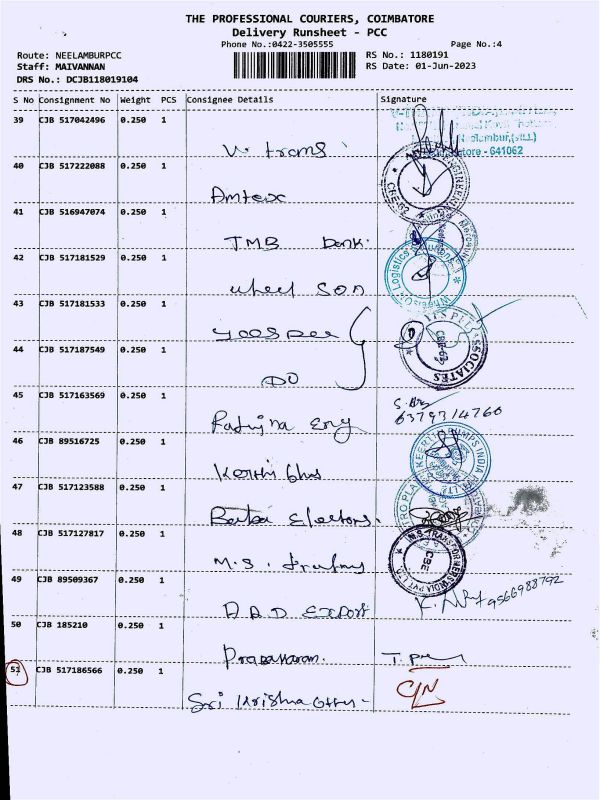 THE PROFESSIONAL COURIERS, COIMBATORE
Delivery Runsheet - PCC
Phone No.:0422-3505555 Page No.:4
Route: NEELAMBURPCC RS No.: 1180191
Staff: MAIVANNAN RS Date: 01-Jun-2023
DRS No.: DCJB118019104
S No Consignment No Weight PCS Consignee Details Signature
39 CJB 517042496 0.250 1
V. trans
641062
40 CJB 517222088 0.250 1
Amtex
CBE-62
41 CJB 516947074 0.250 1
TMB Bank.
42 CJB 517181529 0.250 1
Wheel SON
Logistics
43 CJB 517181533 0.250 1
CBE-62
44 CJB 517187549 0.250 1
DO
SSOCIATES
45 CJB 517163569 0.250 1
Eng
6379314760
46 CJB 89516725 0.250 1
PUMPS INDIA
47 CJB 517123588 0.250 1
48 CJB 517127817 0.250 1
M.S.
M.S. TRANSFORMERS INDIA PVT LTD
CBE
49 CJB 89509367 0.250 1
A.A.D Export
9566988792
50 CJB 185210 0.250 1
51 CJB 517186566 0.250 1
Sri Krishna
C/N